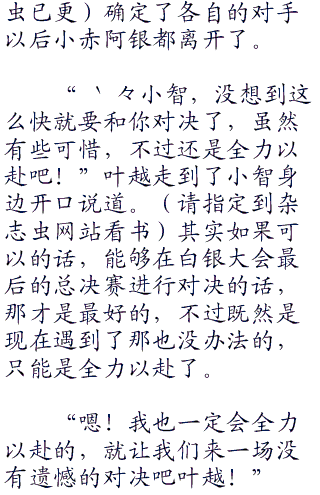 虫已更）确定了各自的对手
以后小赤阿银都离开了。
“丶々小智，没想到这
么快就要和你对决了，虽然
有些可惜，不过还是全力以
赴吧！”叶越走到了小智身
边开口说道。（请指定到杂
志虫网站看书）其实如果可
以的话，能够在白银大会最
后的总决赛进行对决的话，
那才是最好的，不过既然是
现在遇到了那也没办法的，
只能是全力以赴了。
“嗯！我也一定会全力
以赴的，就让我们来一场没
有遗憾的对决吧叶越！”